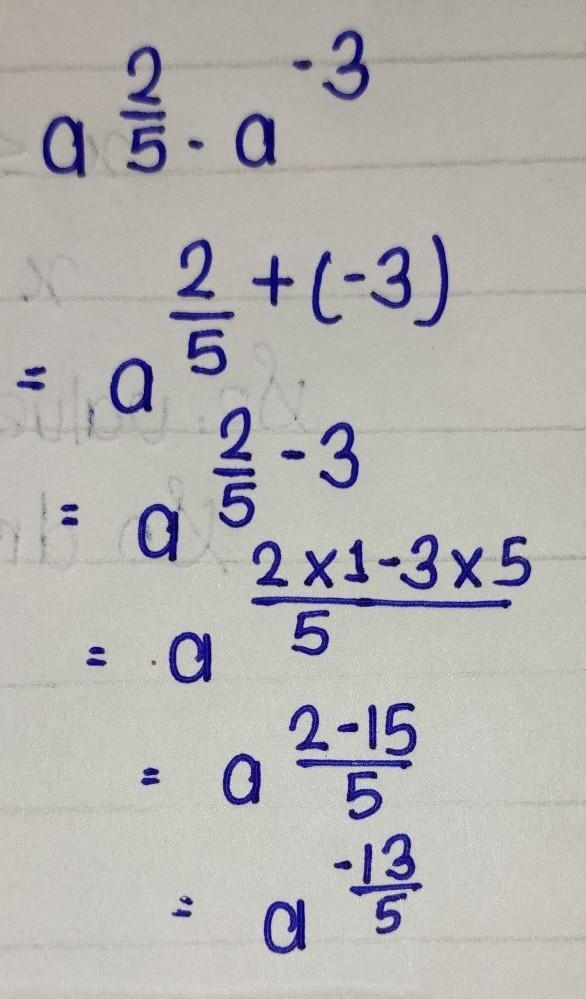 a^(2/5) · a^(-3)
= a^(2/5 + (-3))
= a^(2/5 - 3)
= a^((2×1-3×5)/5)
= a^((2-15)/5)
= a^(-13/5)